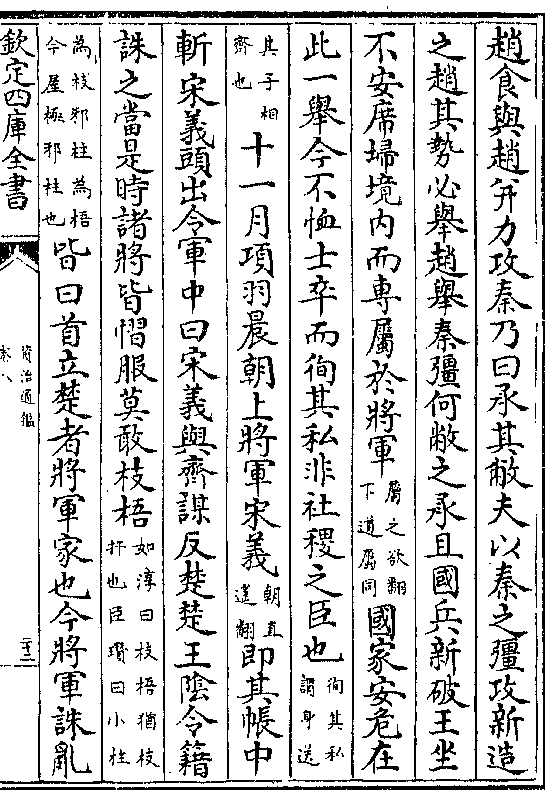 趙食與趙并力攻秦乃曰承其敝夫以秦之彊攻新造
之趙其勢必舉趙舉秦彊何敝之承且國兵新破王坐
不安席埽境内而專屬於將軍屬之欲翻下道屬同國家安危在
此一舉今不恤士卒而徇其私非社稷之臣也徇其私謂身送
其子相齊也十一月項羽晨朝上將軍宋義朝直遥翻即其帳中
斬宋義頭出令軍中曰宋義與齊謀反楚楚王陰令籍
誅之當是時諸將皆慴服莫敢枝梧如淳曰枝梧猶枝扞也臣瓚曰小柱
為枝邪柱為梧今屋極邪柱也皆曰首立楚者將軍家也今將軍誅亂
欽定四庫全書
資治通鑑
卷八